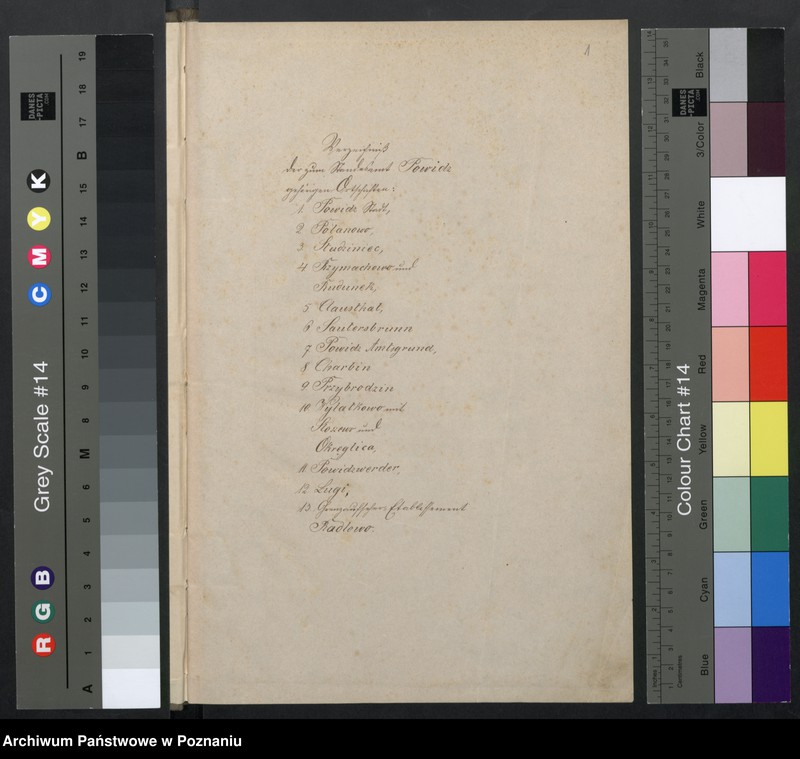 1
Verzeichniß
der zum Standesamt Powidz
gehörigen Ortschaften:
1 Powidz Stadt,
2 Polanowo,
3
4 Przymachowo und
5 Clausthal,
6 Sautersbrunn
7 Powidz Amtsgrund,
8 Charbin
9 Przybrodzin
10 Wylatkowo mit
und
11 Powidzwerder,
12 Lugi,
13 Etablissement
Radlowo.
Grey Scale #14
DANES
-PICTA
.COM
A 1 2 3 4 5 6 M 8 9 10 11 12 13 14 15 B 17 18 19
R G B
C M Y K
Colour Chart #14
DANES
-PICTA
.COM
Black
3/Color
White
Magenta
Red
Yellow
Green
Cyan
Blue
Inches
Centimetres
Archiwum Państwowe w Poznaniu